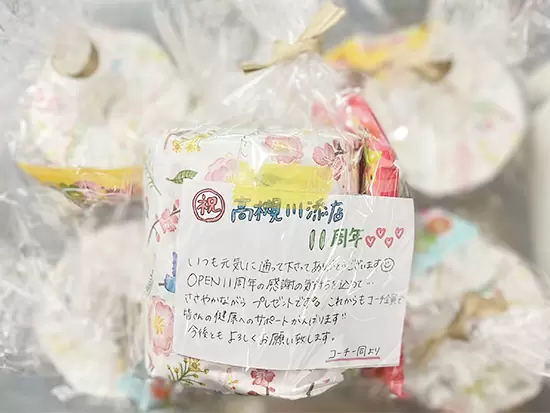 祝 高槻川添店
11周年♡♡♡♡
いつも元気に通って下さってありがとうございます
OPEN11周年の感謝の気持ちを込って…
ささやかながら プレゼントです。これからもコーチ全員で
皆さんの健康へのサポートがんばります!!
今後とも よろしくお願い致します。
コーチ一同より